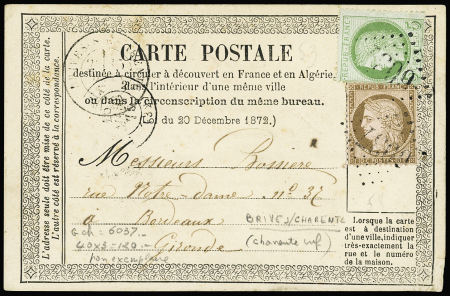 CARTE POSTALE
destinée à circuler à découvert en France et en Algérie,
dans l'intérieur d'une même ville
ou dans la circonscription du même bureau.
du 20 Décembre 1872.)
L'adresse seule doit être mise de ce côté de la carte.
L'autre côté est réservé à la correspondance.
Messieurs Rossiere
rue Notre-Dame nº 37
a Bordeaux
Gironde
BRIVES/CHARENTE
(charente inf)
bon exemplaire
Lorsque la carte
est à destination
d'une ville, indiquer
très-exactement la
rue et le numéro
de la maison.